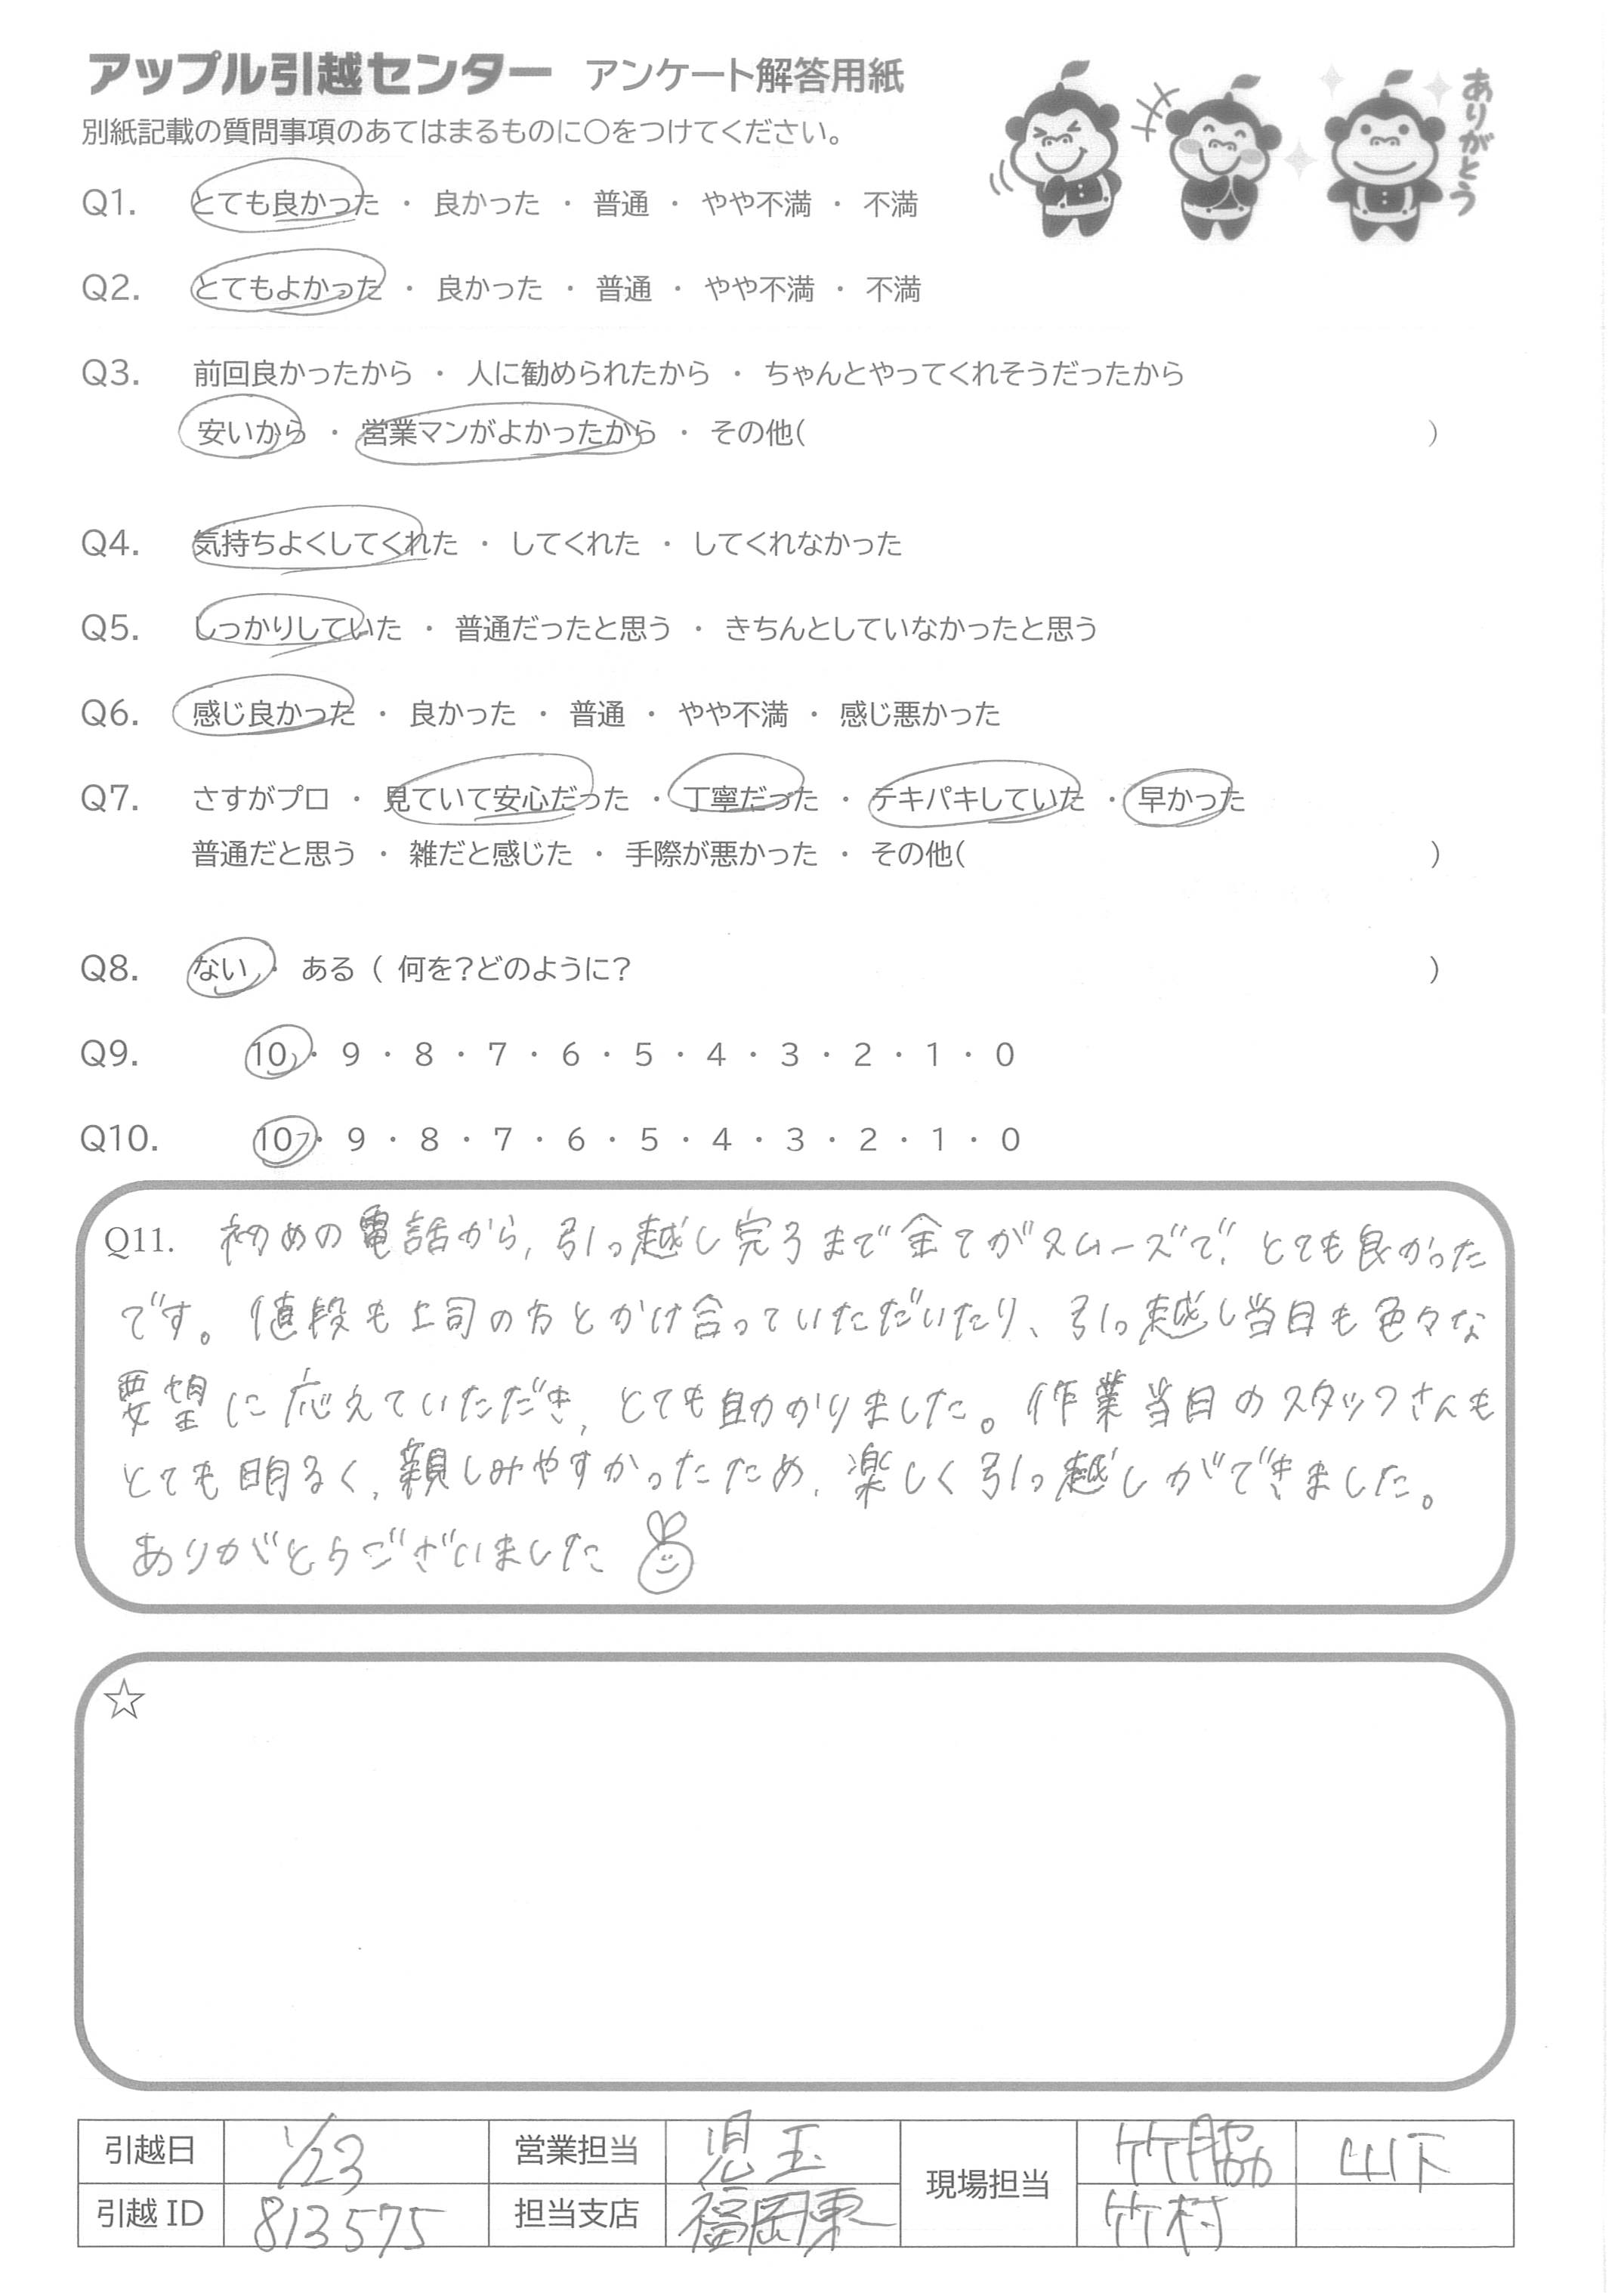 アップル引越センター アンケート解答用紙
ありがとう
別紙記載の質問事項のあてはまるものに○をつけてください。
Q1. とても良かった ・ 良かった ・ 普通 ・ やや不満 ・ 不満
Q2. とてもよかった ・ 良かった ・ 普通 ・ やや不満 ・ 不満
Q3. 前回良かったから ・ 人に勧められたから ・ ちゃんとやってくれそうだったから
安いから ・ 営業マンがよかったから ・ その他( )
Q4. 気持ちよくしてくれた ・ してくれた ・ してくれなかった
Q5. しっかりしていた ・ 普通だったと思う ・ きちんとしていなかったと思う
Q6. 感じ良かった ・ 良かった ・ 普通 ・ やや不満 ・ 感じ悪かった
Q7. さすがプロ ・ 見ていて安心だった ・ 丁寧だった ・ テキパキしていた ・ 早かった
普通だと思う ・ 雑だと感じた ・ 手際が悪かった ・ その他( )
Q8. ない ・ ある ( 何を?どのように? )
Q9. 10 ・ 9 ・ 8 ・ 7 ・ 6 ・ 5 ・ 4 ・ 3 ・ 2 ・ 1 ・ 0
Q10. 10 ・ 9 ・ 8 ・ 7 ・ 6 ・ 5 ・ 4 ・ 3 ・ 2 ・ 1 ・ 0
Q11. 初めの電話から、引っ越し完了まで全てがスムーズで、とても良かった
です。値段も上司の方とかけ合っていただいたり、引っ越し当日も色々な
要望に応えていただき、とても助かりました。作業当日のスタッフさんも
とても明るく、親しみやすかったため、楽しく引っ越しができました。
ありがとうございました
☆
引越日 1/23 営業担当 児玉 現場担当 竹脇 山下
引越ID 813575 担当支店 福岡東 竹村